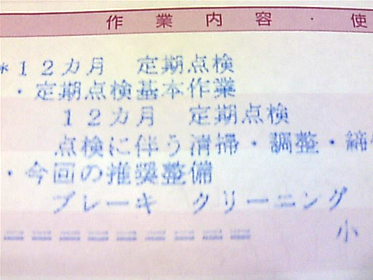 作業内容・使
*12カ月 定期点検
・定期点検基本作業
12カ月 定期点検
点検に伴う清掃・調整・締
・今回の推奨整備
ブレーキ クリーニング
小